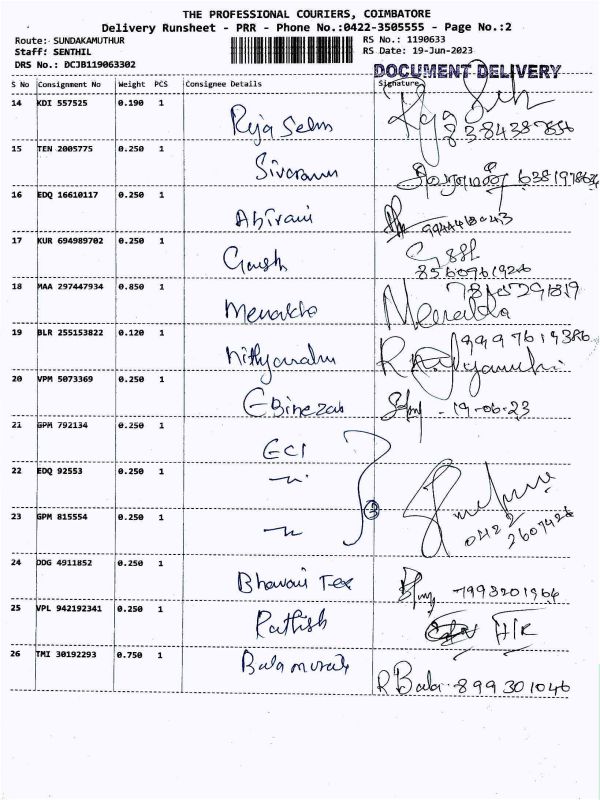 THE PROFESSIONAL COURIERS, COIMBATORE
Delivery Runsheet - PRR - Phone No.:0422-3505555 - Page No.:2
Route: SUNDAKAMUTHUR RS No.: 1190633
Staff: SENTHIL RS Date: 19-Jun-2023
DRS No.: DCJB119063302
DOCUMENT DELIVERY
S No Consignment No Weight PCS Consignee Details Signature
14 KDI 557525 0.190 1 Raja Selm
15 TEN 2005775 0.250 1 Sivaram
16 EDQ 16610117 0.250 1 Abirami
17 KUR 694989702 0.250 1
8560961926
18 MAA 297447934 0.850 1 Menakha Meenakba
19 BLR 255153822 0.120 1
20 VPM 5073369 0.250 1 Ebinezar - 19-06-23
21 GPM 792134 0.250 1 ECI
22 EDQ 92553 0.250 1
23 GPM 815554 0.250 1 3
24 DDG 4911852 0.250 1 Bhavani Tex 7993201966
25 VPL 942192341 0.250 1 Rathish
26 TMI 30192293 0.750 1 Balamurali
R Bala 899301046